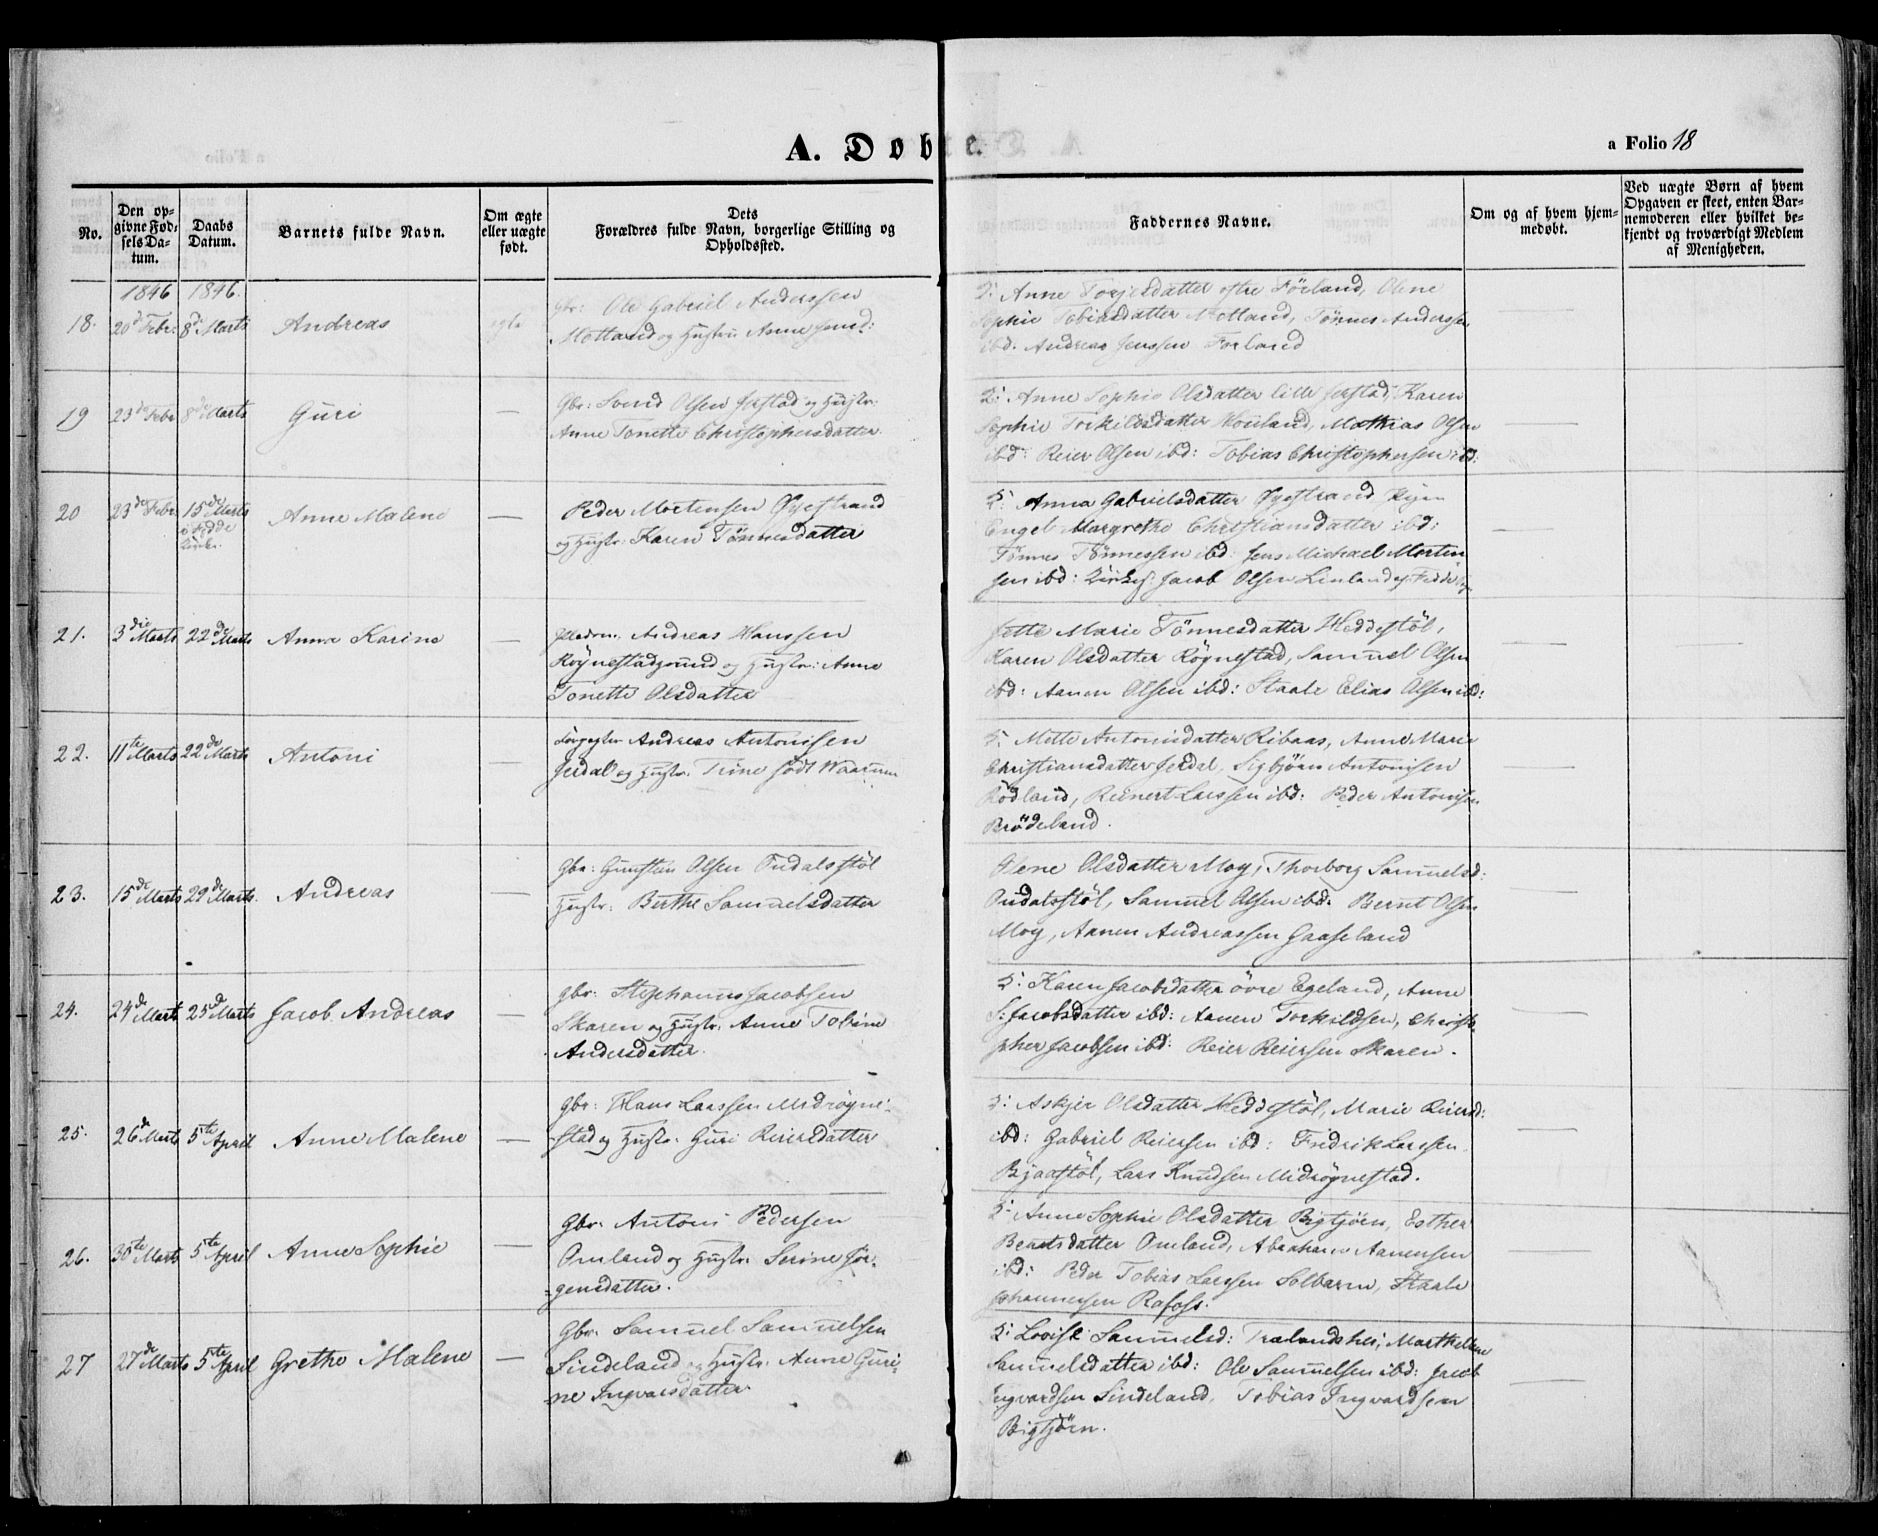 A. Døbte.
a Folio 18
No.
Den opgivne Fødsels Datum.
Daabs Datum.
Barnets fulde Navn.
Om ægte eller uægte født.
Dets Forældres fulde Navn, borgerlige Stilling og Opholdssted.
Faddernes Navne.
Om og af hvem hjemmedøbt.
Ved uægte Børn af hvem Opgaven er skeet, enten Barnemoderen eller hvilket bekjendt og troværdigt Medlem af Menigheden.
1846 1846.
18. 20de Febr: 8de Marts Andreas ægte
Gbr: Ole Gabriel Anderssen
Motland og Hustru Anne
S: Anne Torjesdatter Förland, Olene
Sophie Tobiasdatter Motland, Tönnes Anderssen
ibd. Andreas Jenssen Forland
19 23de Febr 8de Marts Guri —
Gbr: Svend Olsen Jerstad og Hustr:
Anne Tonette Christophersdatter.
S: Anne Sophie Olsdatter lille Jerstad, Karen
Sophie Torkildsdatter Mathias Olsen
ibd: Reier Olsen ibd: Tobias Christophersen ibd:
20 23de Febr. 15de Marts i Fedde Kirke. Anne Malene —
Peder Mortensen Øyestrand
og Hustr: Karen Tönnesdatter
S: Anna Gabrielsdatter Øyestrand
Engel Margrethe Christiansdatter ibd:
Tönnes Tönnessen ibd: Jens Michael Morten-
sen ibd: Jacob Olsen
21. 3die Marts 22de Marts Anna Karine —
Andreas Hanssen
Røgnestadgrund og Hustr: Anne
Tonette Olsdatter
Jette Marie Tönnesdatter Heddestöl,
Karen Olsdatter Rögnestad, Samuel Olsen
ibd: Aanen Olsen ibd: Staale Elias Olsen ibd:
22. 11te Marts 22de Marts Antoni —
Andreas Antonisen
Jerdal og Hustr. Trine født
S: Mette Antonisdatter Ribaas, Anne Marie
Christiansdatter Jerdal, Sigbjörn Antonisen
Rödland, Reinert Larssen ibd: Peder Antonisen
Brödeland.
23. 15de Marts 29de Marts. Andreas —
Gbr: Gunsten Olsen Oudalsstöl
Hustr: Berthe Samuelsdatter
Olene Olsdatter Moy, Thorborg Samuelsd:
Oudalsstöl, Samuel Olsen ibd. Bernt Olsen
Moy, Aanen Andreassen Gaaseland
24. 24de Marts 25de Marts Jacob Andreas —
Gbr: Stephanus Jacobsen
Skaren og Hustr. Anne Tobine
Andersdatter.
S: Karen Jacobsdatter övre Egeland, Anne
S: Jacobsdatter ibd: Aanen Torkildsen, Christo-
pher Jacobsen ibd: Reier Reiersen Skaren.
25. 26de Marts 5te April Anne Malene —
Gbr: Hans Larssen Midrögne-
stad og Hustr. Guri Reiersdatter
S: Askjer Olsdatter Heddestöl, Marie Reiersd:
ibd: Gabriel Reiersen ibd: Fredrik Larssen
Bjaastöl, Lars Knudsen Midrögnestad.
26. 30te Marts 5te April Anne Sophie —
Gbr. Antoni Pedersen
Omland og Hustr. Serine Jör-
gensdatter.
S: Anne Sophie Olsdatter Bigtjörn, Esther
Berntsdatter Omland, Abraham Aanensen
ibd: Peder Tobias Larssen Solbarm, Staale
Johannessen Rafoss.
27 27de Marts 5te April Grethe Malene —
Gbr. Samuel Samuelsen
Sindeland og Hustr. Anne Guri-
ne Ingvarsdatter
S: Lovise Samuelsd: Trælandshei, Marthe
Samuelsdatter ibd: Ole Samuelsen ibd: Jacob
Ingvardsen Sindeland, Tobias Ingvardsen
Bigtjörn.